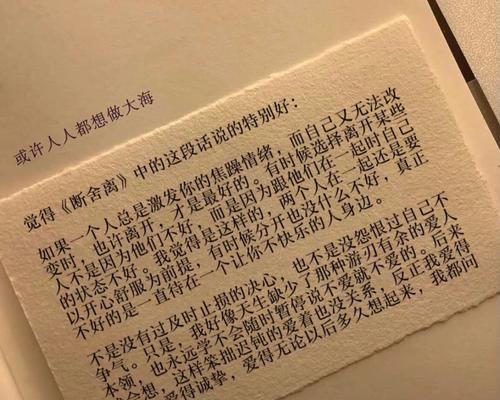 或许人人都想做大海
觉得《断舍离》中的这段话说的特别好：
如果一个人总是激发你的焦躁情绪，而自己又无法改
变时，也许离开，才是最好的。有时候选择离开某些
人不是因为他们不好，而是因为跟他们在一起时自己
的状态不好。我觉得是这样的，两个人在一起还是要
以开心舒服为前提，有时候分开也没什么不好，真正
不好的是一直待在一个让你不快乐的人身边。
不是没有过及时止损的决心，也不是没怨恨过自己不
争气。只是，我好像天生缺少了那种游刃有余的爱人
本领，也永远学不会随时暂停说不爱就不爱的。后来
会想，这样笨拙迟钝的爱着也没关系，反正我爱得
爱得诚挚，爱得无论以后多久想起来，我都问